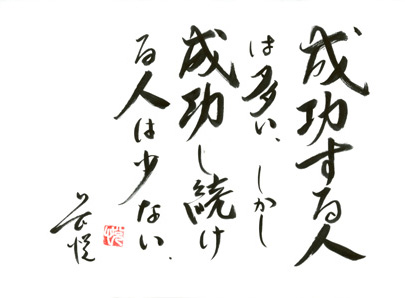 成功する人
は多い、しかし
成功し続け
る人は少ない、